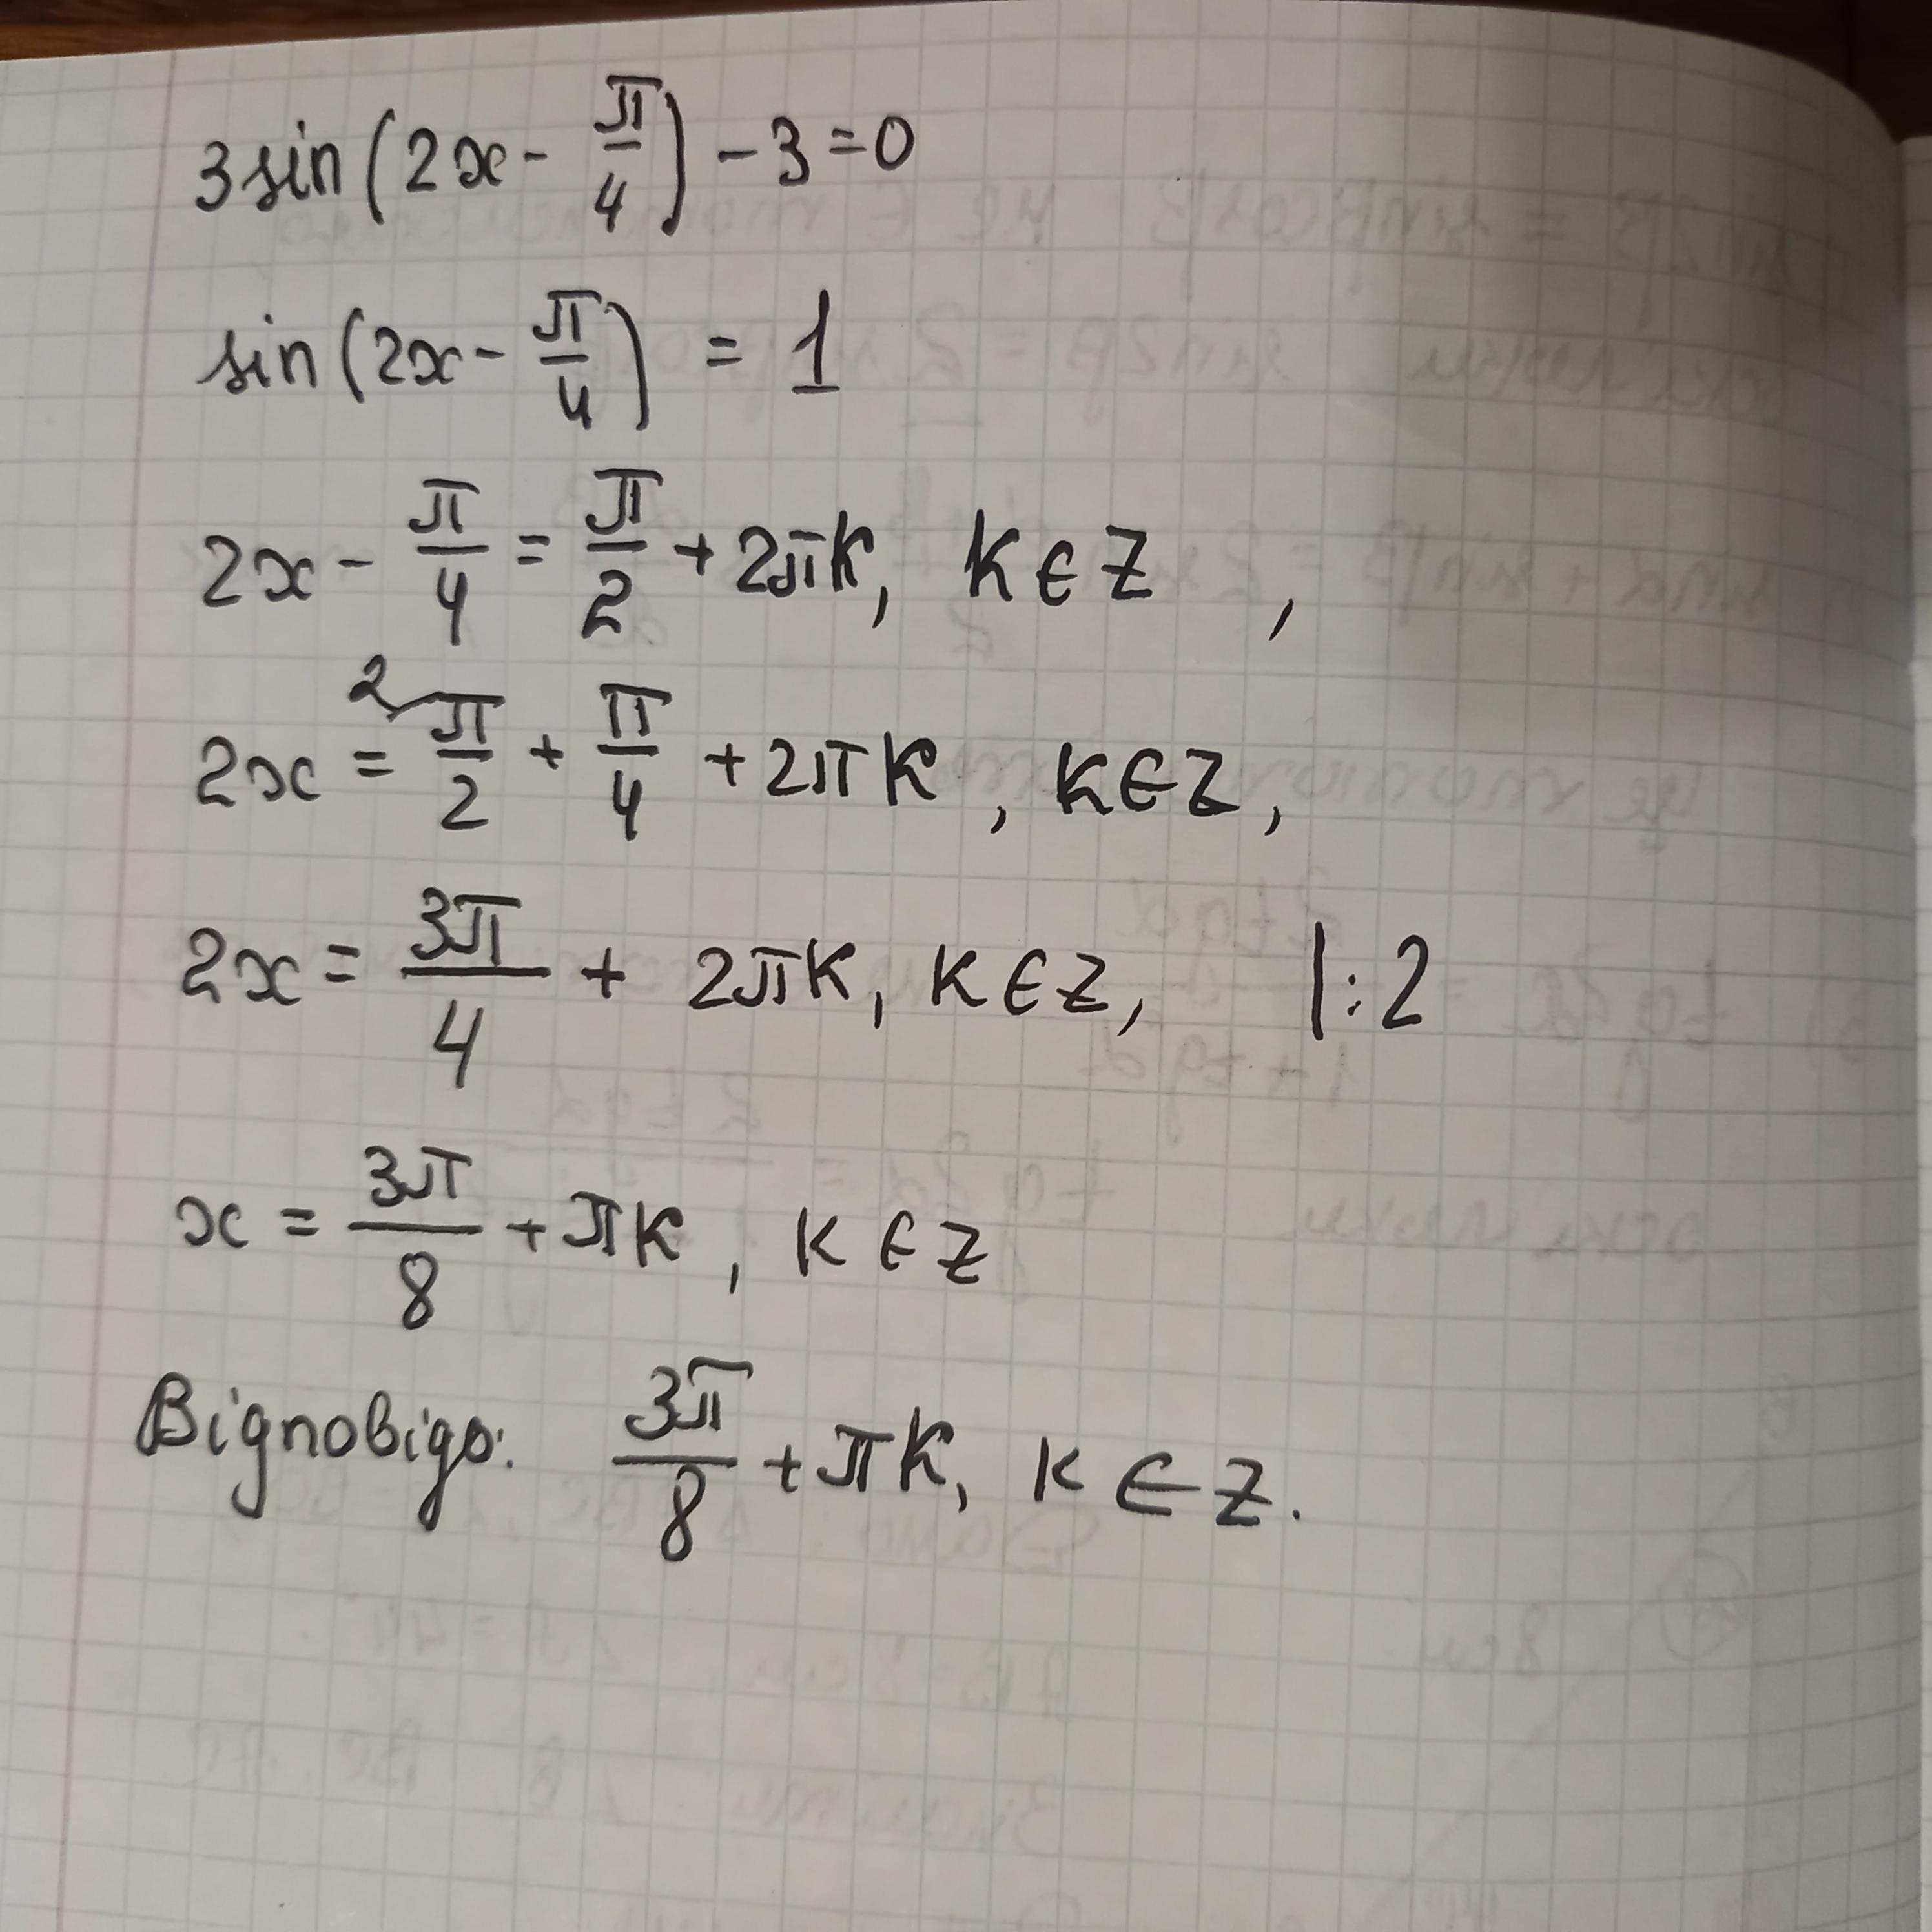 3sin(2x - π/4) - 3 = 0
sin(2x - π/4) = 1
2x - π/4 = π/2 + 2πk, k∈Z,
2x = ²π/2 + π/4 + 2πk, k∈Z,
2x = 3π/4 + 2πk, k∈Z, |:2
x = 3π/8 + πk, k∈Z
Відповідь: 3π/8 + πk, k∈Z.